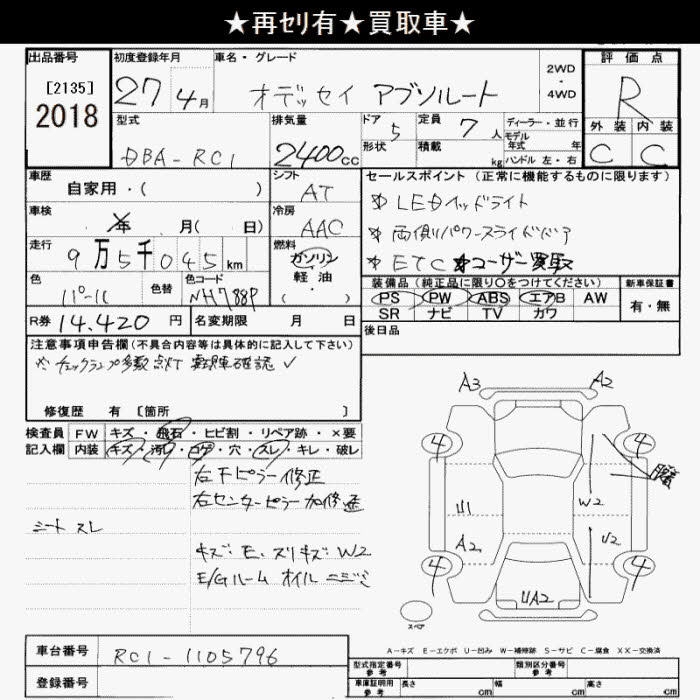 ★再セリ有★買取車★
出品番号 初度登録年月 車名・グレード 評価点
[2135]
2018
27年4月 オデッセイ アブソルート 2WD・4WD R
型式 排気量 ドア 5 定員 7人 ディーラー・並行 外装 内装
DBA-RC1 2400cc 形状 積載 kg モデル年式 年 ハンドル 左・右 C C
車歴 シフト セールスポイント(正常に機能するものに限ります)
自家用・( ) AT ※LEDヘッドライト
車検 年 月( 日) 冷房 AAC ※両側パワースライドドア
走行 9万5千045km 燃料 ガソリン・軽油・( ) ※ETC ※ユーザー買取
色 パール 色替 色コード NH788P
装備品(純正品に限り○をつけてください) 新車保証書
PS PW ABS エアB AW 有・無
SR ナビ TV カワ
R券 14.420円 名変期限 月 日 後日品
注意事項申告欄(不具合内容等は具体的に記入して下さい)
※チェックランプ多数点灯 実車確認 ✓
修復歴 有 [箇所 ]
検査員 FW キズ・飛石・ヒビ割・リペア跡・×要
記入欄 内装 キズ・汚レ・コゲ・穴・スレ・キレ・破レ
右Fピラー修正
右センターピラー加修
シート スレ
キズ・E、スリキズ W2
E/Gルーム オイル ニジミ
A3 A2
4 4
U1 W2
A2 U2
4 4
UA2
スペア
A-キズ E-エクボ U-凹み W-補修跡 S-サビ C-腐食 XX-交換済
車台番号 RC1-1105796
登録番号
型式指定番号 参考 類別区分番号 参考
車庫証明用 参考 長さ cm 幅 cm 高さ cm